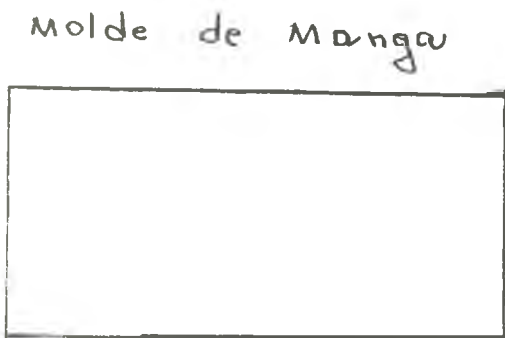 Molde de Manga